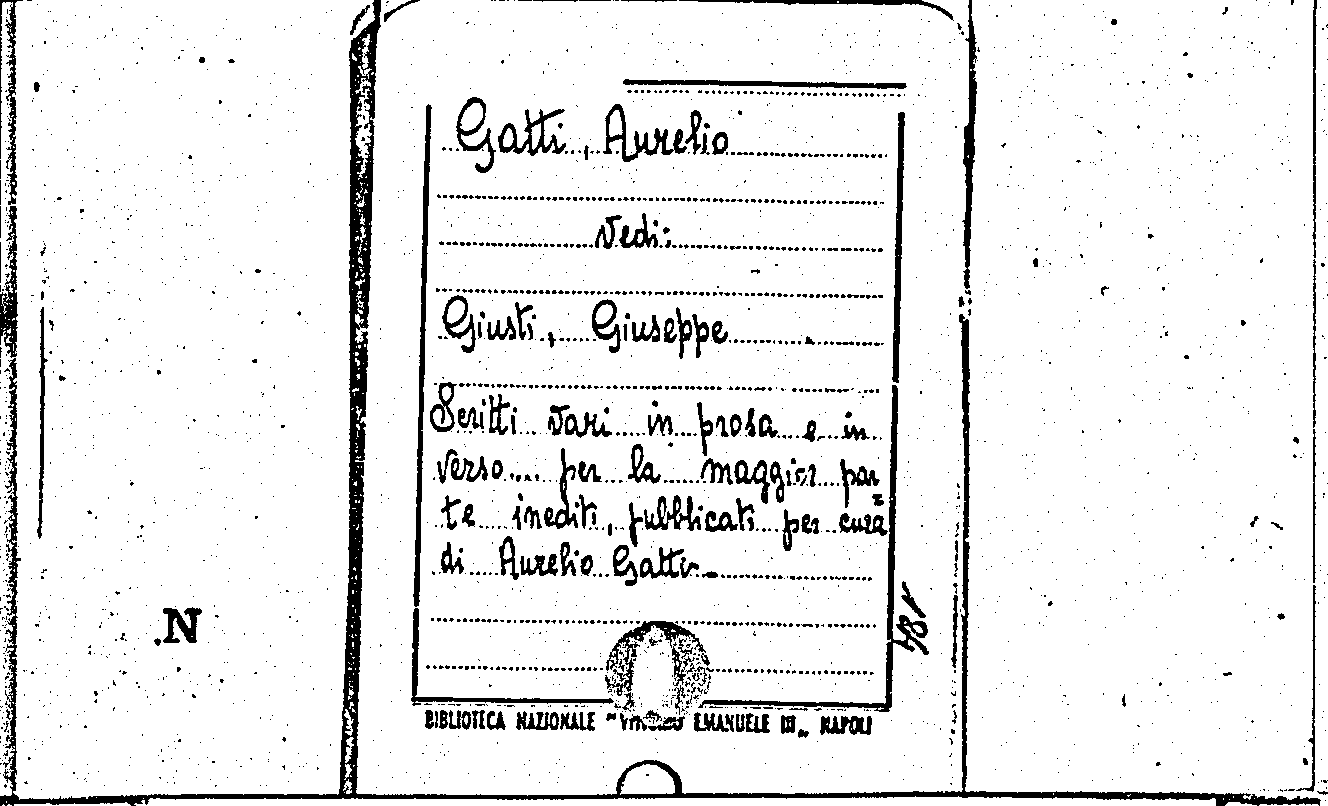 Gatti, Aurelio
Vedi:
Giusti, Giuseppe
Scritti vari in prosa e in
verso... per la maggior par=
te inediti, pubblicati per cura
di Aurelio Gatti.-
BIBLIOTECA NAZIONALE "VITTORIO EMANUELE III„ NAPOLI
.N